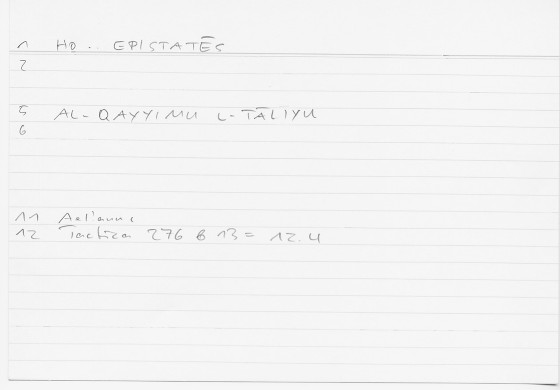 1 HO . EPISTATĒS
2
5 AL-QAYYIMU L-TĀLIYU
6
11 Aelianus
12 Tactica 276 B 13 = 12.4